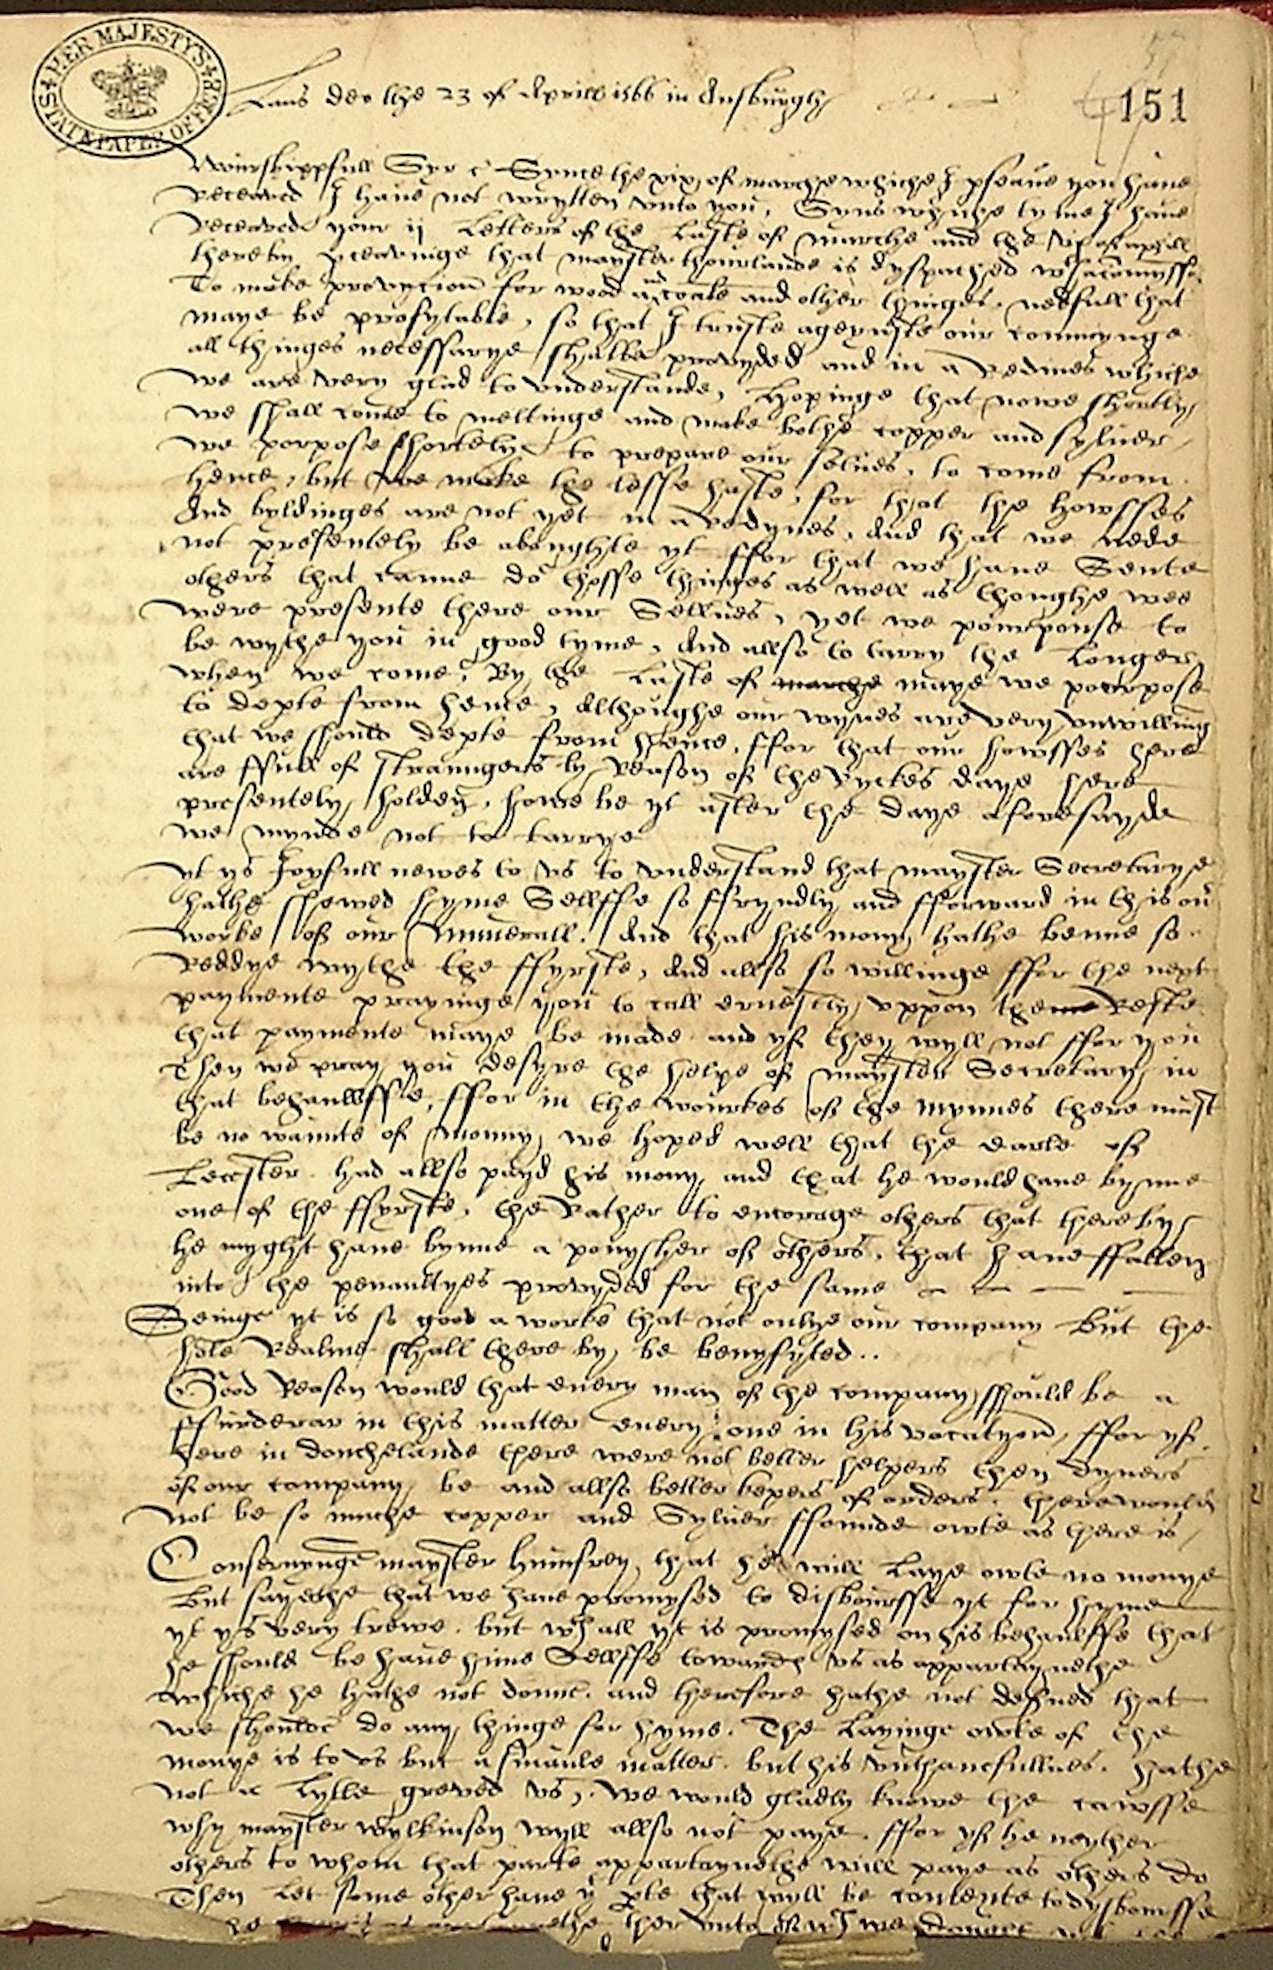 HER MAJESTY'S STATE PAPER OFFICE
151
Laus deo the 23 of Aprill 1566 in Ausburgh
Wourshippfull Syr &c Synce the xix of marche whiche I pseave you have
Receaved I have not wrytten unto you, Syns whiche tyme I have
Receaved your ij Letters of the Laste of marche and the of aprill
thereby pceavinge that mayster thourlande is dyspached wth a comyssio
To make provycion for wood and coale and other thinges nedfull that
maye be profytable, so that I truste ageynste our commynge
all thinges necessarye shalbe provyded and in a Redines whiche
we are very glad to understande, Hopinge that nowe shortly
we shall come to meltinge and make bothe copper and sylver
we porpose shortely to prepare our selves to come from
hence, but we make the lesse haste, for that the howsses
And byldinges are not yet in a redynes, And that we nede
not presentely be aboughte yt ffor that we have Sente
others that canne do thosse thinges as well as thoughe wee
were presente there our Sellves, yet we pourpouse to
be wythe you in good tyme, And allso to tarry the Longer
when we come, By the Laste of marche maye we pourpose
to depte from hence, Althoughe our wyves are very unwilling
that we should depte from hence, ffor that our howsses here
are ffull of straungers by Reason of the Ryckes daye here
presentely holden, howe be yt after the daye aforesayde
we mynde not to tarrye
yt ys Joyfull newes to us to understand that mayster Secretarye
hathe shewed hyme Sellffe so ffryndly and fforward in this our
worke of our mynnerall. And that his mony hathe benne so
Reddye wythe the ffyrste, And allso so willinge ffor the next
paymente prayinge you to call ernestly uppon the Reste
that paymente maye be made and yf they wyll not ffor you
Then we pray you desyre the helpe of mayster Secretary in
that behaullffe, ffor in the wourkes of the mynnes there must
be no waunte of monny, we hoped well that the earle of
Lecester had allso payd his mony and that he would have bynne
one of the ffyrste, the Rather to encorage others that thereby
he myght have bynne a ponysher of others, that have ffallen
into the penaultyes provyded for the same
Seinge yt is so good a worke that not onlye our company But the
hole Realme shall thereby be benyfyted ..
Good Reason would that every man of the company should be a
ffurderar in this matter every one in his vocatyon, ffor yf
here in douchelande there were not better helpers then dyvers
of our company be and allso better kepers of orders, there would
not be so muche copper and Sylver ffounde owte as there is
Consernynge mayster humfrey, that he will Laye owte no monye
But sayethe that we have promysed to disboursse yt for hyme
yt ys very trewe, but wthall yt is promysed on his behaulffe that
he should be have hime Sellffe towardes us as appartaynethe
whiche he hathe not donne, and therefore hathe not desrved that
we shoulde do any thinge for hyme. The Layinge owte of the
monye is to us but a smaule matter, but his unthancfullnes hathe
not a Lytle greved us, we would gladly knowe the cawsse
why mayster wylkinson wyll allso not paye, ffor yf he neyther
others to whom that parte appartaynethe will paye as others do
Then Let some other have ye pte that wyll be contente to dysboursse
ther unto But we